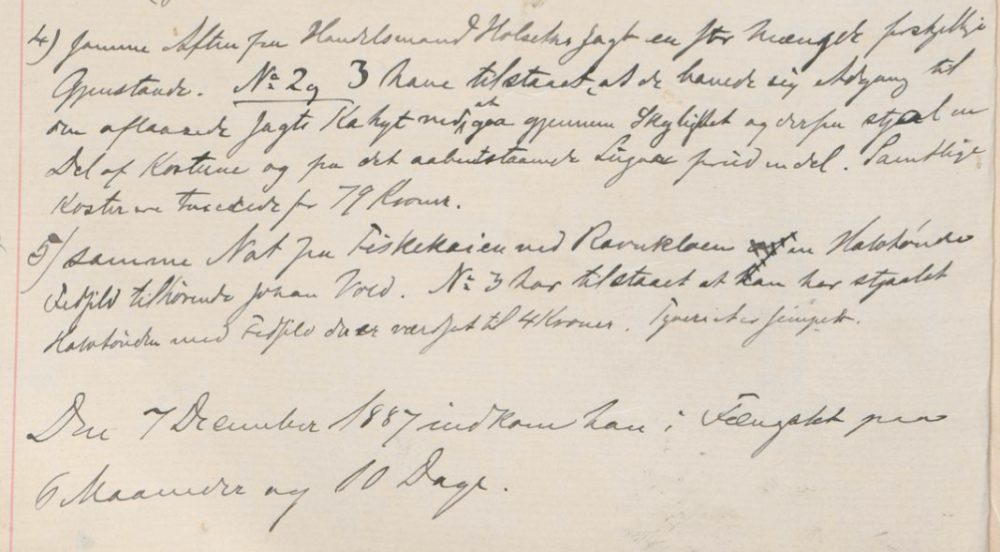 4) samme Aften fra Handelsmand Holseths Jagt en stor Mængde forskjellige
Gjenstande. No 2 og 3 have tilstaaet, at de banede sig Adgang til
den aflaasede Jagts Kahyt ved at gaa gjennem Skylightet og derfra stjal en
Del af Kosterne og fra det aabentstaaende Lugar en del. Samtlige
Koster ere taxerede for 79 Kroner.
5) samme Nat fra Fiskekaien ved Ravnkloen en Halvtønde
Fedsild tilhørende Johan Vold. No 3 har tilstaaet at han har stjaalet
Halvtønden med Fedsild der er værdsat til 4 Kroner. Tyveriet er simpelt.
Den 7 December 1887 indkom han i Fængslet paa
6 Maaneder og 10 Dage.